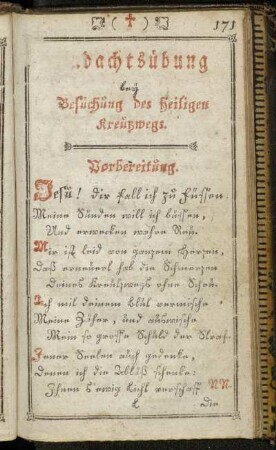 ( † ) 171
dachtsübung
bey
Besuchung des Heiligen
Kreutzwegs.
Vorbereitung.
Jesu! dir fall ich zu Füssen
Meine Sünden will ich büssen,
Und erwecken wahre Reu.
Mir ist leid von ganzem Herzen,
Daß erneuert hab die Schmerzen
Deines Kreutzwegs ohne Scheu.
Ich mit deinem blut vermische
Meine Zäher, und auswische
Mein so grosse Schuld der Straf.
Jener Seelen auch gedenke,
Denen ich die Abläß schenke:
Ihnen s'ewig Licht verschaff NN.
Die